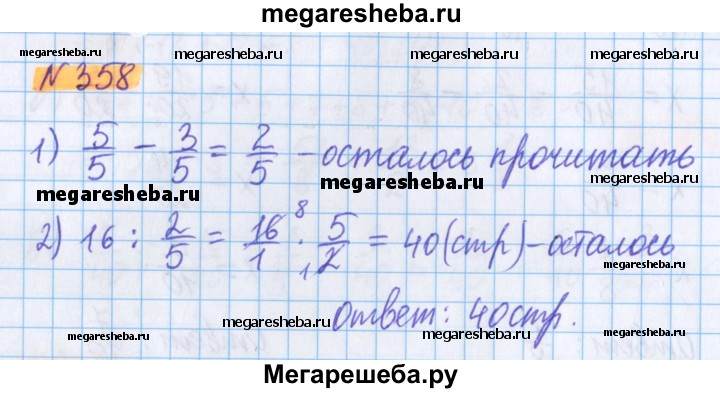 megaresheba.ru
megaresheba.ru megaresheba.ru megaresheba.ru
N 358
1) 5/5 - 3/5 = 2/5 - осталось прочитать
megaresheba.ru megaresheba.ru megaresheba.ru
2) 16 : 2/5 = 16/1 8 · 5/2 1 = 40 (стр) - осталось
Ответ: 40 стр.
megaresheba.ru megaresheba.ru megaresheba.ru
Мегарешеба.ру